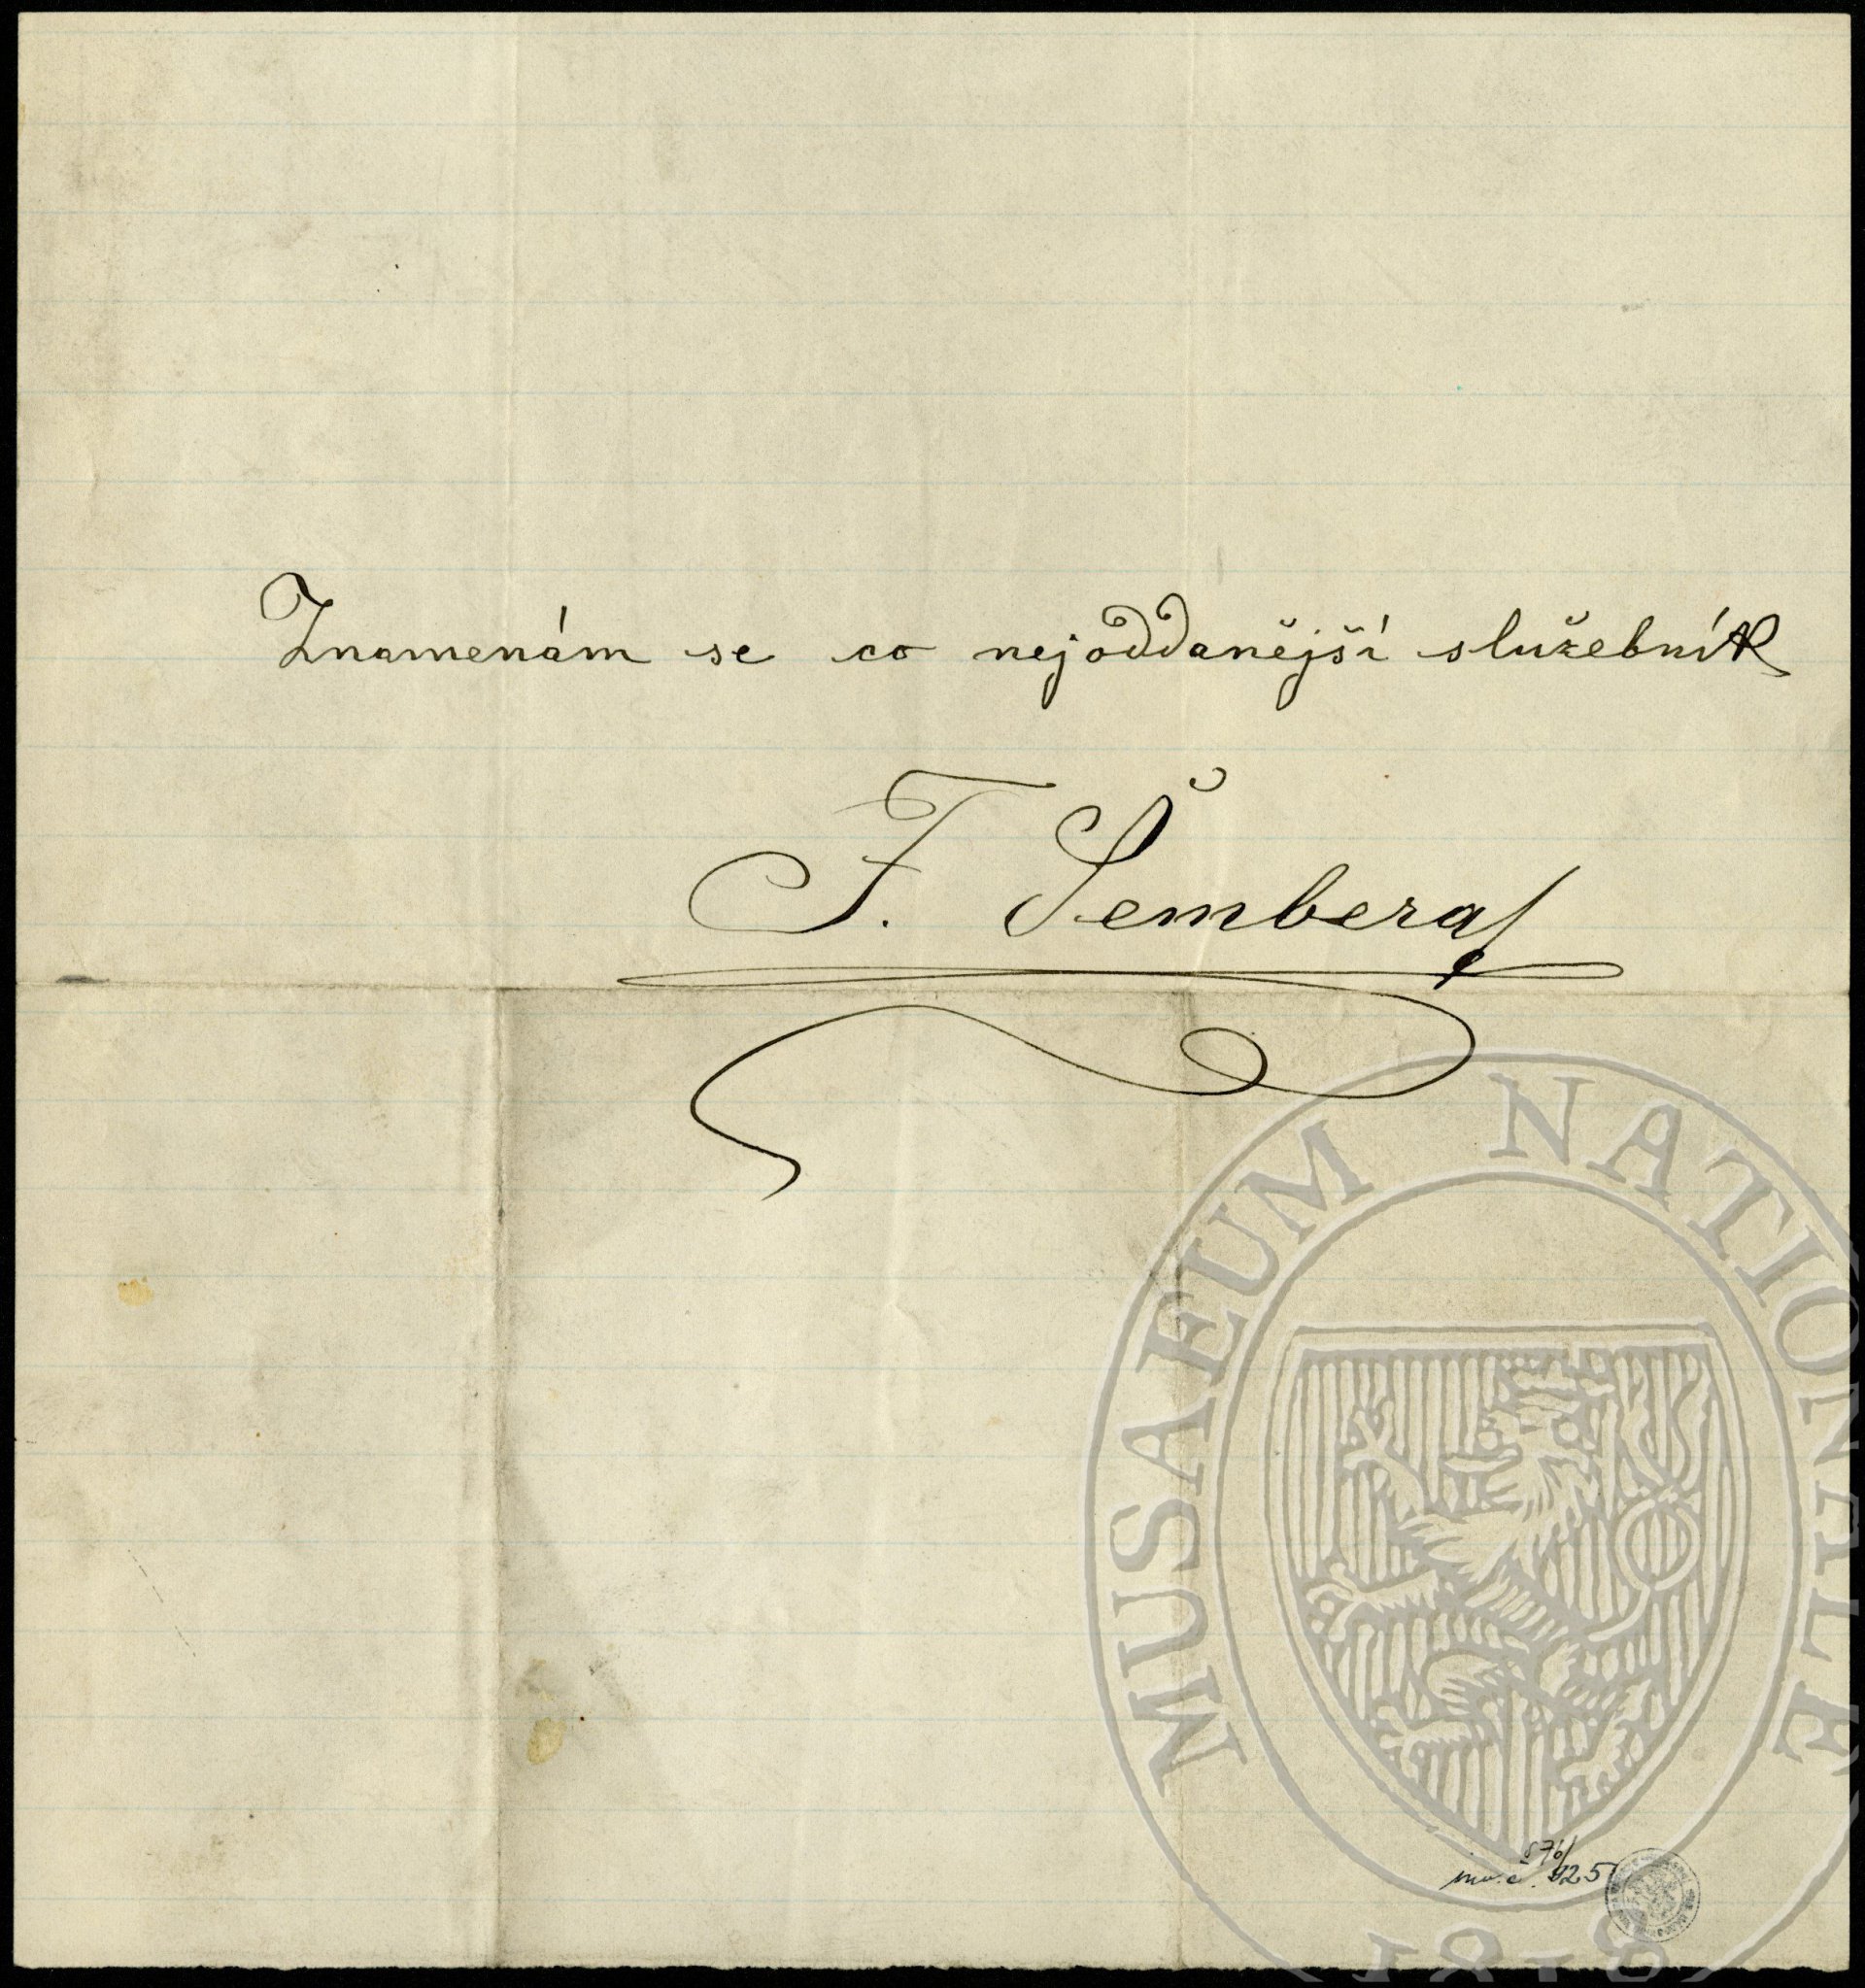 Znamenám se co nejoddanější služebník
F. Šembera
MUSAEUM NATIONALE
1818
inv. č. 425